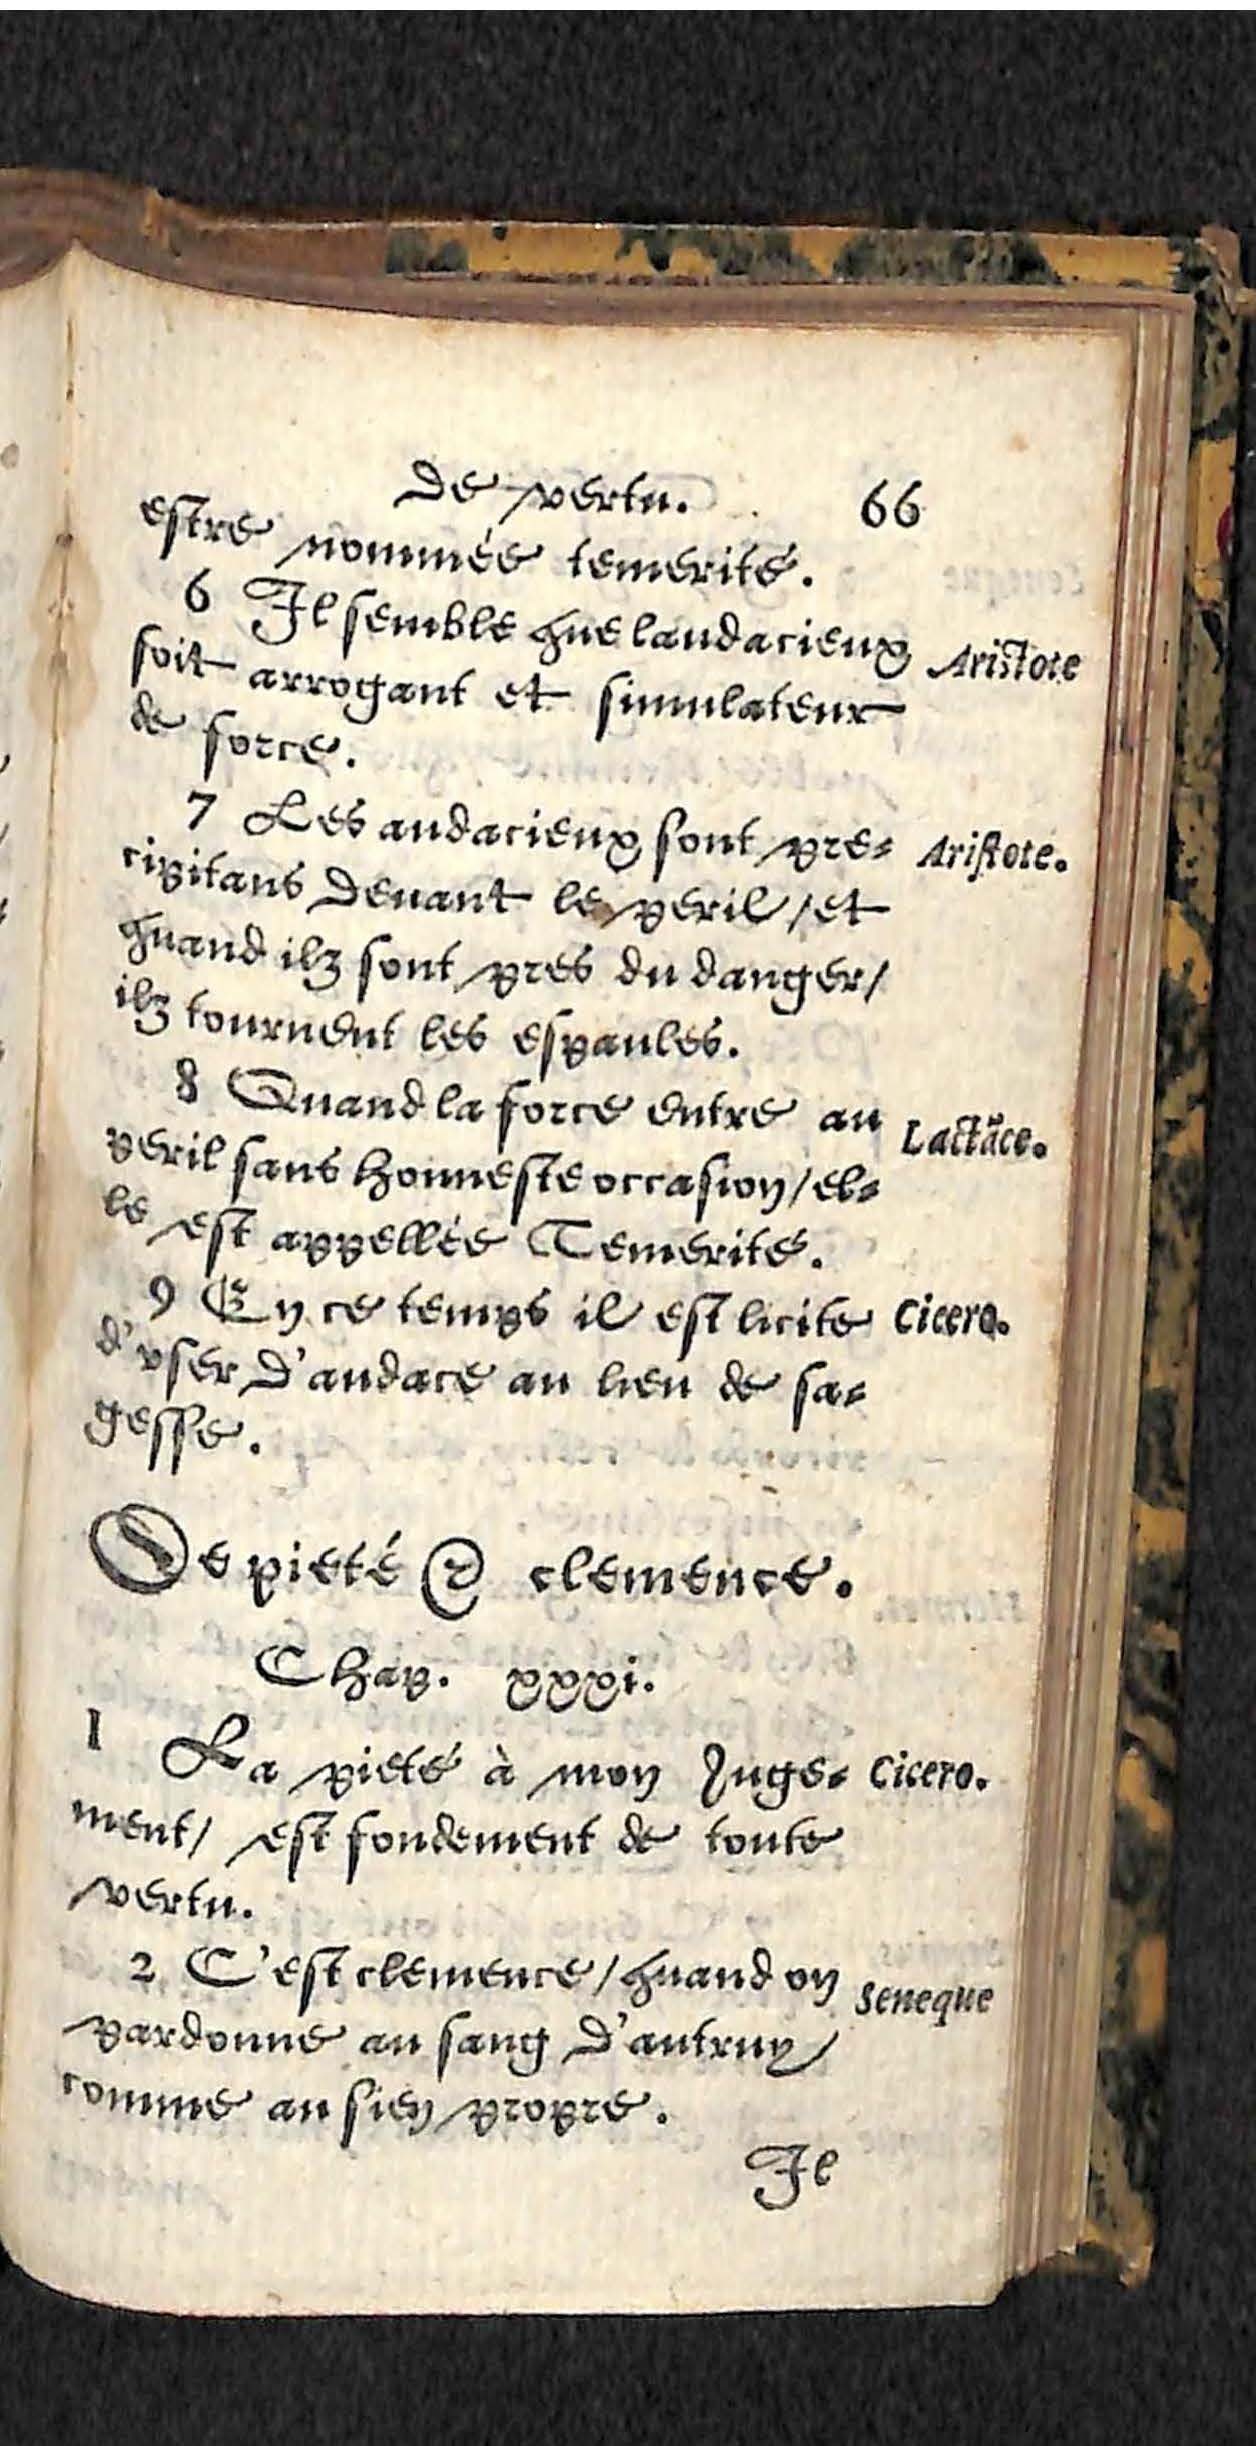 De vertu. 66
estre nommée temerité.
6 Il semble que laudacieux Aristote
soit arrogant et simulateur
de force.
7 Les audacieux sont pre- Aristote.
cipitans devant le peril / et
quand ilz sont pres du danger /
ilz tournent les espaules.
8 Quand la force entre au Lactãce.
peril sans honneste occasion / el-
le est appellée Temerité.
9 En ce temps il est licite Cicero.
d'vser d'audace au lieu de sa-
gesse.
De pieté & clemence.
Chap. xxxi.
1 La pieté à mon Juge- Cicero.
ment / est fondement de toute
vertu.
2 C'est clemence / quand on Seneque
pardonne au sang d'autruy /
comme au sien propre.
Il